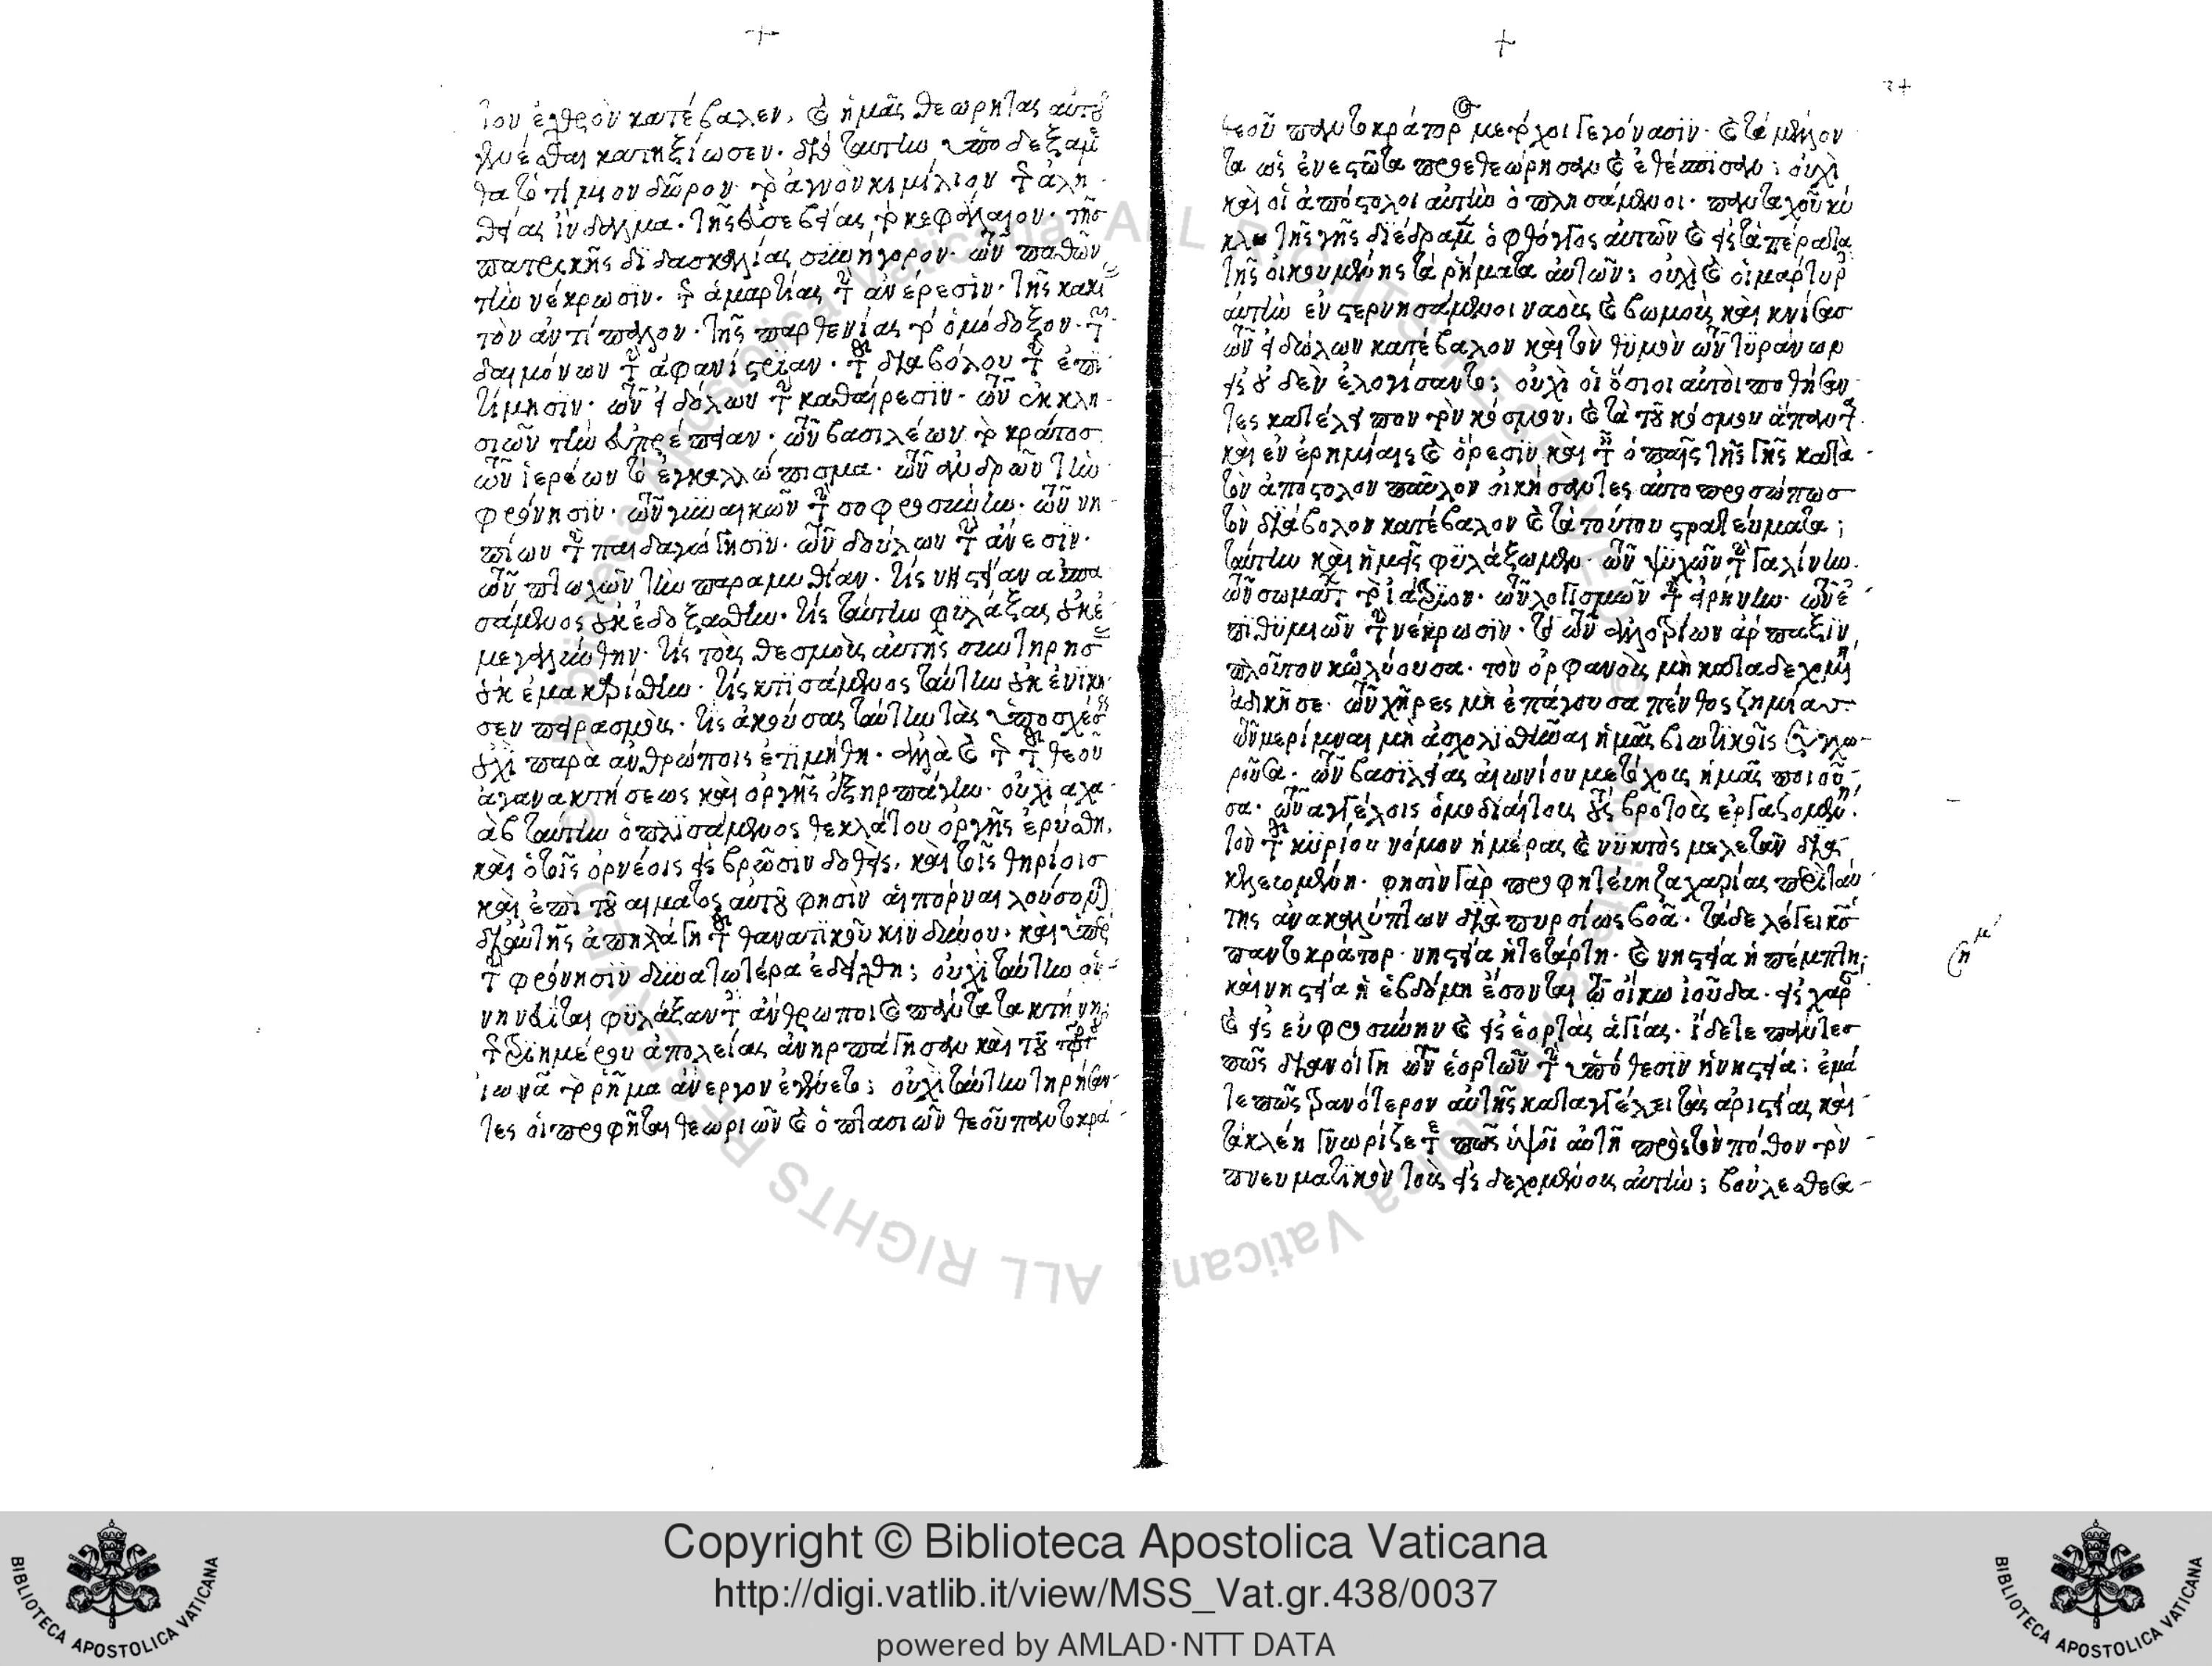 τον ἐχθρὸν κατέβαλεν, καὶ ἡμᾶς θεωρητὰς αὐτοῦ
γενέσθαι κατηξίωσεν. διὸ ταύτην ὑποδεξώμε
θα τὸ τίμιον δῶρον. τὸ ἁγνὸν κιμίλιον τῆς ἀλη
θείας ἴνδαλμα. τῆς εὐσεβείας τὸ κεφάλαιον. τῆς
πατρικῆς διδασκαλίας συνήγορον. τῶν παθῶν
τὴν νέκρωσιν. τῆς ἁμαρτίας τὴν ἀνέρεσιν. τῆς κακί
τὸν ἀντίπαλον. τῆς παρθενίας τὸ ὁμόδοξον. τῶν
δαιμόνων τὴν ἀφανίστριαν. τοῦ διαβόλου τὴν ἐπι
τίμησιν. τῶν εἰδώλων τὴν καθαίρεσιν. τῶν ἐκκλη
σιῶν τὴν εὐπρέπειαν. τῶν βασιλέων τὸ κράτος
τῶν ἱερέων τὸ ἐγκαλλώπισμα. τῶν ἀνδρῶν τὴν
φρόνησιν. τῶν γυναικῶν τὴν σοφροσύνην. τῶν νη
πίων τὴν παιδαγώγησιν. τῶν δούλων τὴν ἄνεσιν.
τῶν πτωχῶν τὴν παραμυθίαν. τίς νηστείαν ἀσπα
σάμενος οὐκ ἐδοξάσθην. τίς ταύτην φυλάξας οὐκ ἐ
μεγαλύνθην. τίς τοὺς θεσμοὺς αὐτῆς συντηρήσας
οὐκ ἐμακαρίσθην. τίς κτισάμενος ταύτην οὐκ ἐνίκη
σεν πειρασμούς. τίς ἀκούσας ταύτην τὰς ὑποσχέσεις
οὐχὶ παρὰ ἀνθρώποις ἐτιμήθη. ἀλλὰ καὶ τῆς τοῦ θεοῦ
ἀγανακτήσεως καὶ ὀργῆς ἐξηρπάγην. οὐχὶ ἀχα
ὰβ ταύτην ὁπλισάμενος θεηλάτου ὀργῆς ἐρύσθη.
καὶ ὁ τοῖς ὀρνέοις εἰς βρῶσιν δοθεὶς. καὶ τοῖς θηρίοις
καὶ ἐπὶ τοῦ αἵματος αὐτοῦ φησὶν αἱ πόρναι λούσονται
δι αὐτῆς ἀπηλάγη τοῦ θανατικοῦ κινδύνου. καὶ ὑπὲρ
τὴν φρόνησιν δυνατωτέρα ἐδείχθη; οὐχὶ ταύτην οἱ
νηνευῖται φυλάξαντες ἄνθρωποι καὶ πάντα τὰ κτήνη
τῆς τριημέρου ἀπολείας ἀνηρπάγησαν καὶ τοῦ προφήτου
ἰωνᾶ τὸ ῥῆμα ἄνεργον ἐγένετο; οὐχὶ ταύτην τηρήσαν
τες οἱ προφῆται θεωριῶν καὶ ὀπτασιῶν θεοῦ παντοκρά
θεοῦ παντοκράτορος μέτοχοι γεγόνασιν. καὶ τὰ μέλλον
τα ὡς ἐνεστῶτα προεθεώρησαν καὶ ἐθέσπισαν; οὐχὶ
καὶ οἱ ἀπόστολοι αὐτὴν ὁπλησάμενοι. πανταχοῦ κύ
κλω τῆς γῆς διέδραμεν ὁ φθόγγος αὐτῶν καὶ εἰς τὰ πέρατα
τῆς οἰκουμένης τὰ ῥήματα αὐτῶν; οὐχὶ καὶ οἱ μάρτυρες
αὐτὴν ἐνστερνησάμενοι ναοὺς καὶ βωμοὺς καὶ κνίσας
τῶν εἰδώλων κατέβαλον καὶ τὸν θυμὸν τῶν τυράννων
εἰς οὐδὲν ἐλογίσαντο; οὐχὶ οἱ ὅσιοι αὐτοὶ ποθήσαν
τες κατέλειπον τὸν κόσμον, καὶ τὰ τοῦ κόσμου ἅπαντα
καὶ ἐν ἐρημίαις καὶ ὄρεσιν καὶ ταῖς ὀπαῖς τῆς γῆς κατὰ
τὸν ἀπόστολον παῦλον οἰκήσαντες αὐτοπροσώπως
τὸν διάβολον κατέβαλον καὶ τὰ τούτου στρατεύματα;
ταύτην καὶ ἡμεῖς φυλάξωμεν. τῶν ψυχῶν τὴν γαλίνην.
τῶν σωμάτων τὸ ἰατρῖον. τῶν λογισμῶν τὴν εἰρήνην. τῶν ἐ
πιθυμιῶν τὴν νέκρωσιν. τὸ τῶν ἀλλοτρίων ἁρπάξιν
πλοῦτον κωλύουσα. τοὺς ὀρφανοὺς μὴ καταδεχομένη
ἀδικῆσε. τῶν χῆρες μὴ ἐπάγουσα πένθος ζημίας
τῶν μερίμναι μὴ ἀσχολῖσθῶναι ἡμᾶς βιωτικοῖς
ροῦσα. τῶν βασιλείας αἰωνίου μετόχους ἡμᾶς ποιοῦ
σα. τῶν ἀγγέλοις ὁμοδιαίτους τοὺς βροτοὺς ἐργαζομένη.
τὸν τοῦ κυρίου νόμον ἡμέρας καὶ νυκτὸς μελετᾶν δια
κελευομένη. φησὶν γὰρ προφητεύει ζαχαρίας
της ἀνακαλύπτων διαπυρσίως βοᾶ. τάδε λέγει κύριος
παντοκράτορ. νηστεία ἡ τετάρτη. καὶ νηστεία ἡ πέμπτη;
καὶ νηστεία ἡ ἑβδόμη ἔσονται τῶ οἴκω ἰούδα. εἰς χαρὰν
καὶ εἰς εὐφροσύνην καὶ εἰς ἑορτὰς ἁγίας. ἴδετε πάντες
πῶς διανοίγη τῶν ἑορτῶν τὴν ὑπόθεσιν ἡ νηστεία; ἐμά
τε πῶς τρανότερον αὐτῆς καταγγέλει τὰς ἀριστείας καὶ
τὰ κλέη γνωρίζετε πῶς ὑψοῖ αὐτὴ πρὸς τὸν πόθον τὸν
πνευματικὸν τοὺς εἰσδεχομένους αὐτήν; βούλεσθε
ALL RIGHTS RESERVED © Biblioteca Apostolica Vaticana
Copyright © Biblioteca Apostolica Vaticana
http://digi.vatlib.it/view/MSS_Vat.gr.438/0037
powered by AMLAD·NTT DATA
BIBLIOTECA APOSTOLICA VATICANA
BIBLIOTECA APOSTOLICA VATICANA